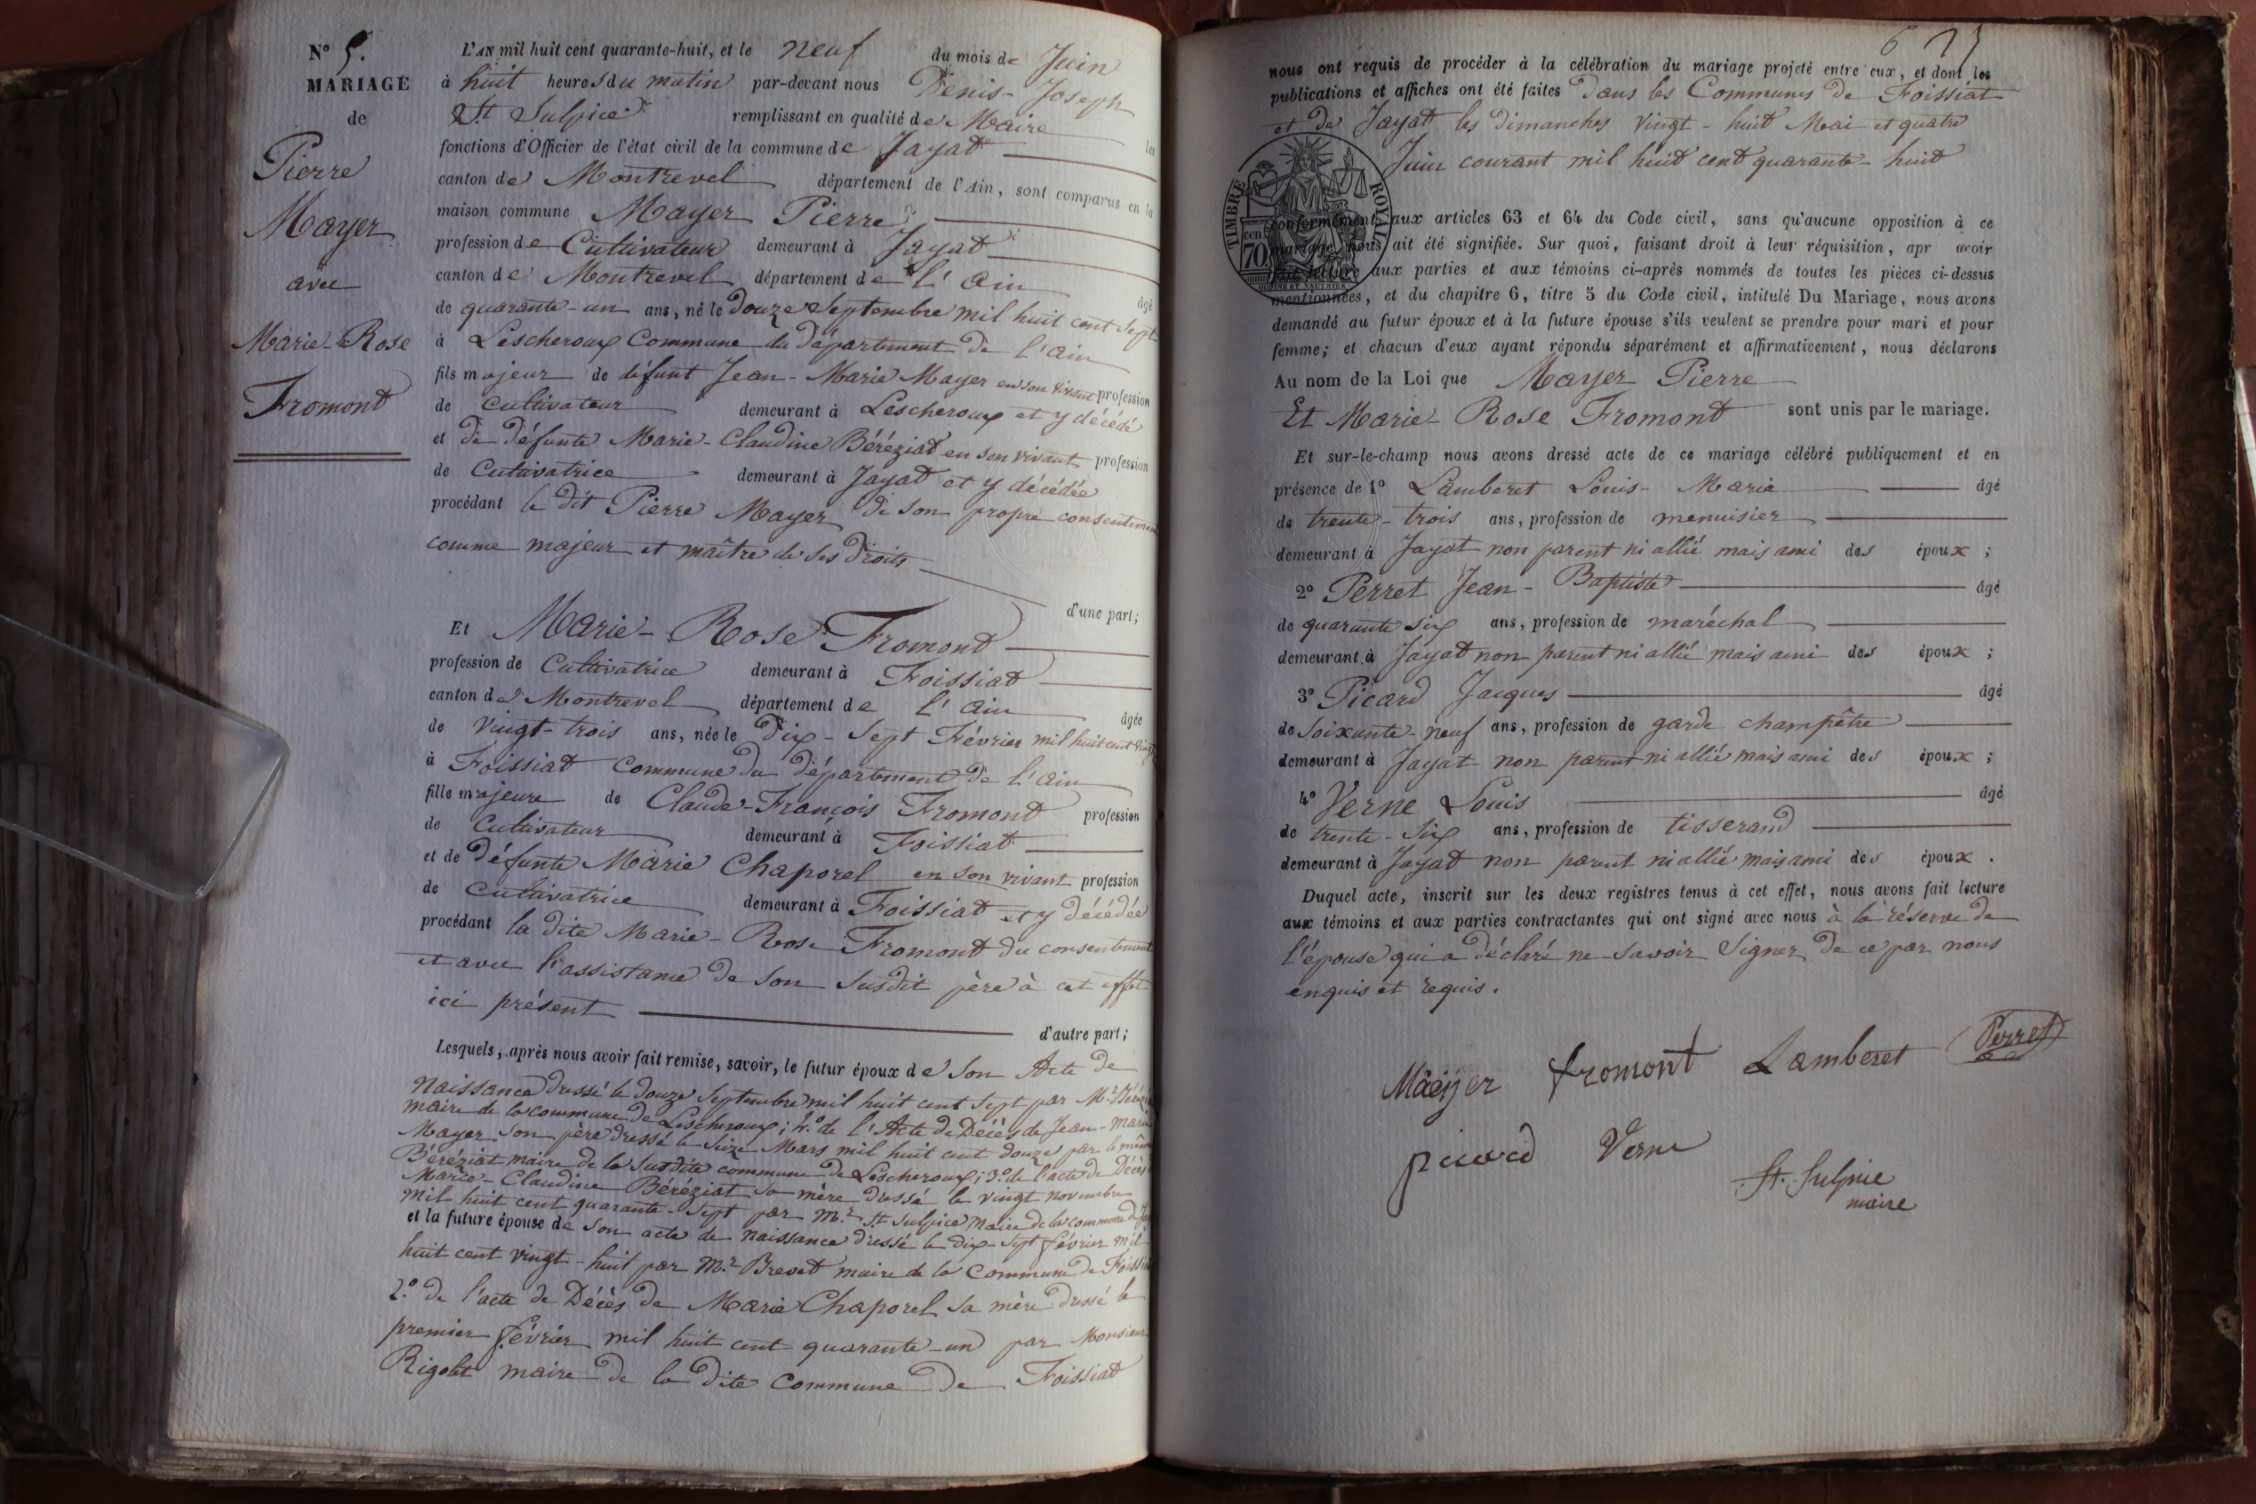 N° 5.
MARIAGE
de
Pierre
Mayer
avec
Marie-Rose
Fromont
L'AN mil huit cent quarante-huit, et le neuf du mois de Juin
à huit heures du matin par-devant nous Denis-Joseph
St Sulpice remplissant en qualité de Maire les
fonctions d'Officier de l'état civil de la commune de Jayat
canton de Montrevel département de l'Ain, sont comparus en la
maison commune Mayer Pierre
profession de Cultivateur demeurant à Jayat
canton de Montrevel département de l'Ain âgé
de quarante-un ans, né le douze Septembre mil huit cent sept
à Lescheroux Commune du département de l'ain
fils majeur de défunt Jean-Marie Mayer en son vivant profession
de Cultivateur demeurant à Lescheroux et y décédé
et de défunte Marie-Claudine Béréziat en son vivant profession
de Cultivatrice demeurant à Jayat et y décédée
procédant le dit Pierre Mayer de son propre consentement
comme majeur et maître de ses droits
d'une part;
Et Marie-Rose Fromont
profession de Cultivatrice demeurant à Foissiat
canton de Montrevel département de l'ain âgée
de vingt-trois ans, née le dix-sept Février mil huit cent vingt
à Foissiat Commune du département de l'ain
fille majeure de Claude-François Fromont profession
de Cultivateur demeurant à Foissiat
et de défunte Marie Chaporel en son vivant profession
de Cultivatrice demeurant à Foissiat et y décédée
procédant la dite Marie-Rose Fromont du consentement
et avec l'assistance de son susdit père à cet effet
ici présent
d'autre part;
Lesquels, après nous avoir fait remise, savoir, le futur époux de son Acte de
Naissance dressé le douze Septembre mil huit cent sept par Mr
maire de la commune de Lescheroux; 2° de l'Acte de Décès de Jean-Marie
Mayer son père dressé le seize Mars mil huit cent douze par le même
Béréziat maire de la susdite commune de Lescheroux; 3° de l'acte de Décès
Marie-Claudine Béréziat sa mère dressé le vingt novembre
mil huit cent quarante-sept par Mr St Sulpice Maire de la commune de
et la future épouse de son acte de naissance dressé le dix-sept février mil
huit cent vingt-huit par Mr Brevet maire de la Commune de Foissiat
2° de l'acte de Décès de Marie Chaporel sa mère dressé le
premier février mil huit cent quarante-un par Monsieur
Rigolet maire de la dite Commune de Foissiat
6
nous ont requis de procéder à la célébration du mariage projeté entre eux, et dont les
publications et affiches ont été faites Dans les Communes de Foissiat
et de Jayat les dimanches vingt-huit Mai et quatre
Juin courant mil huit cent quarante-huit
TIMBRE ROYAL
cen
70
conformément aux articles 63 et 64 du Code civil, sans qu'aucune opposition à ce
mariage nous ait été signifiée. Sur quoi, faisant droit à leur réquisition, apr avoir
fait lecture aux parties et aux témoins ci-après nommés de toutes les pièces ci-dessus
mentionnées, et du chapitre 6, titre 5 du Code civil, intitulé Du Mariage, nous avons
demandé au futur époux et à la future épouse s'ils veulent se prendre pour mari et pour
femme; et chacun d'eux ayant répondu séparément et affirmativement, nous déclarons
Au nom de la Loi que Mayer Pierre
Et Marie-Rose Fromont sont unis par le mariage.
Et sur-le-champ nous avons dressé acte de ce mariage célébré publiquement et en
présence de 1° Lamberet Louis-Marie âgé
de trente-trois ans, profession de menuisier
demeurant à Jayat non parent ni allié mais ami des époux;
2° Perret Jean-Baptiste âgé
de quarante six ans, profession de maréchal
demeurant à Jayat non parent ni allié mais ami des époux;
3° Picard Jacques âgé
de soixante-neuf ans, profession de garde champêtre
demeurant à Jayat non parent ni allié mais ami des époux;
4° Verne Louis âgé
de trente-six ans, profession de tisserand
demeurant à Jayat non parent ni allié mais ami des époux.
Duquel acte, inscrit sur les deux registres tenus à cet effet, nous avons fait lecture
aux témoins et aux parties contractantes qui ont signé avec nous à la réserve de
l'épouse qui a déclaré ne savoir signer de ce par nous
enquis et requis.
Mäeyer fromont Lamberet Perret
picard Verne
St. Sulpice
maire